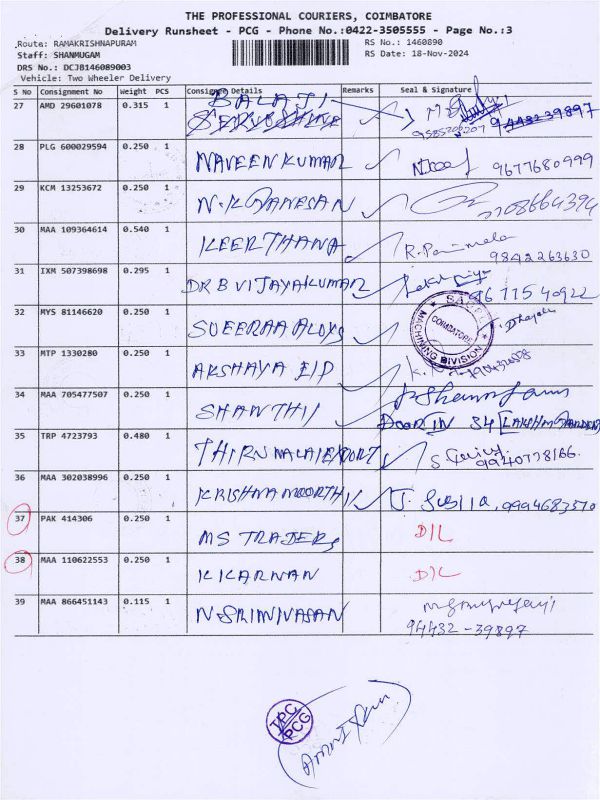 THE PROFESSIONAL COURIERS, COIMBATORE
Delivery Runsheet - PCG - Phone No.:0422-3505555 - Page No.:3
Route: RAMAKRISHNAPURAM RS No.: 1460890
Staff: SHANMUGAM RS Date: 18-Nov-2024
DRS No.: DCJ8146089003
Vehicle: Two Wheeler Delivery
S No Consignment No Weight PCS Consignee Details Remarks Seal & Signature
27 AMD 29601078 0.315 1 BALAJI
9585202207 9443239897
28 PLG 600029594 0.250 1 NAVEEN KUMAR 9677680999
29 KCM 13253672 0.250 1 N.K GANESAN
30 MAA 109364614 0.540 1 KEERTHANA 9842263630
31 IXM 507398698 0.295 1 DR B VIJAYAKUMAR
32 MYS 81146620 0.250 1 SUEERAA ALOYS COIMBATORE
MACHINING DIVISION
33 MTP 1330280 0.250 1 AKSHAYA EIP
34 MAA 705477507 0.250 1 SHANTHI
35 TRP 4723793 0.480 1 THIRUMALAI EXPORT
36 MAA 302038996 0.250 1 KRISHNAMOORTHI 9994683570
37 PAK 414306 0.250 1 MS TRADERS D/L
38 MAA 110622553 0.250 1 K KARNAN D/L
39 MAA 866451143 0.115 1 N.SRINIVASAN
94432-39897
TPC
PCG